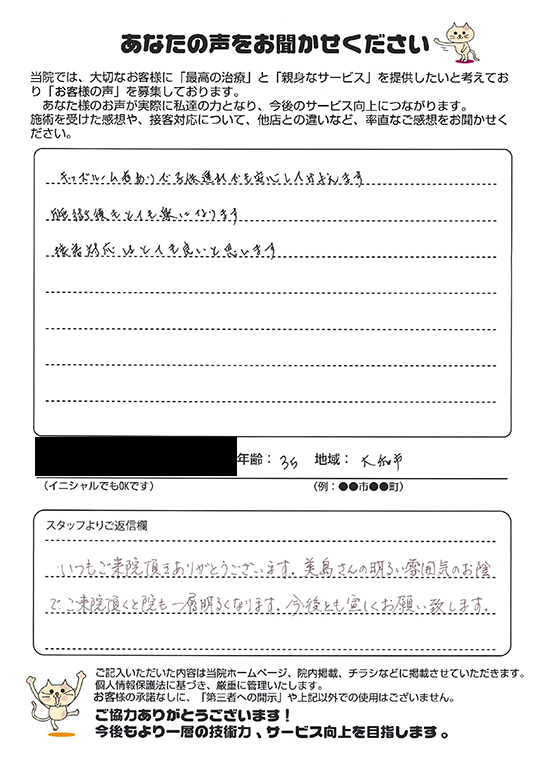 あなたの声をお聞かせください
当院では、大切なお客様に「最高の治療」と「親身なサービス」を提供したいと考えてお
り「お客様の声」を募集しております。
あなた様のお声が実際に私達の力となり、今後のサービス向上につながります。
施術を受けた感想や、接客対応について、他店との違いなど、率直なご感想をお聞かせく
ださい。
キッズルームもありで子供連れでも安心して通えます
施術後もとても楽になります
接客対応はとても良いと思います
年齢： 35 地域： 大和市
（イニシャルでもOKです） （例：●●市●●町）
スタッフよりご返信欄
いつもご来院頂きありがとうございます。美島さんの明るい雰囲気のお陰
でご来院頂くと院も一層明るくなります。今後とも宜しくお願い致します。
ご記入いただいた内容は当院ホームページ、院内掲載、チラシなどに掲載させていただきます。
個人情報保護法に基づき、厳重に管理いたします。
お客様の承諾なしに、「第三者への開示」や上記以外での使用はございません。
ご協力ありがとうございます！
今後もより一層の技術力、サービス向上を目指します。